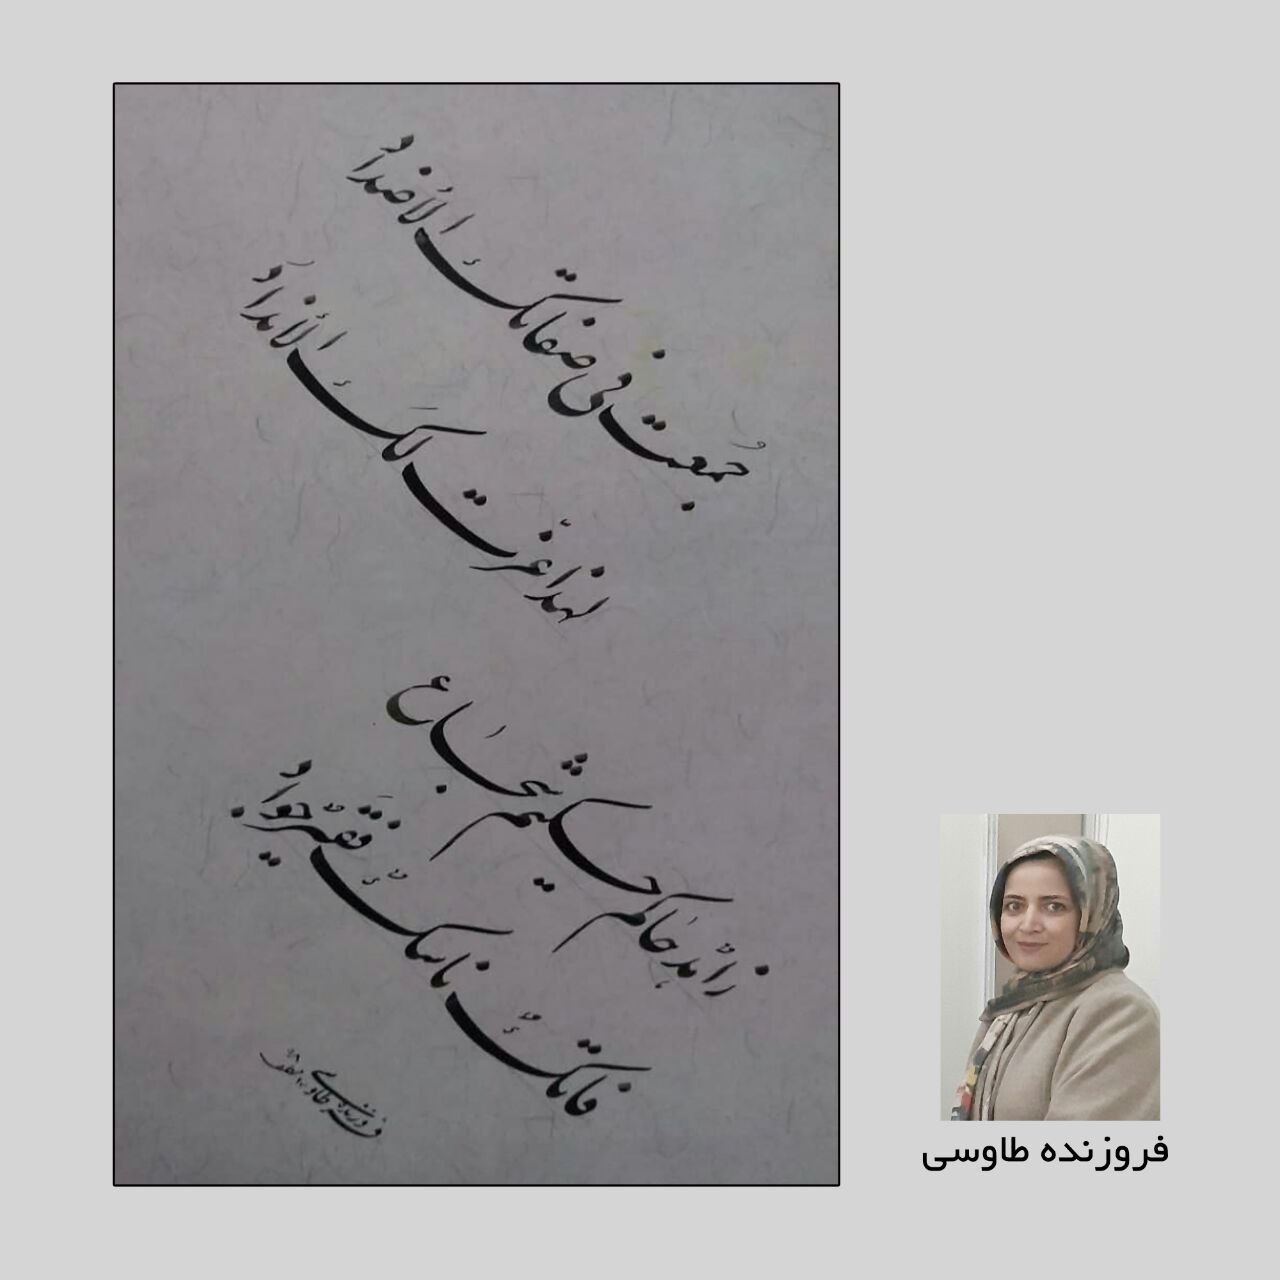 جُمعت في صفاتك الأضداد
لهذا عزّت لكَ الأندادَ
زاهدٌ حاكم حكيم شجاع
فاتكٌ ناسكٌ فَقیرٌ جواد
فروزنده طاوسی
فروزنده طاوسی